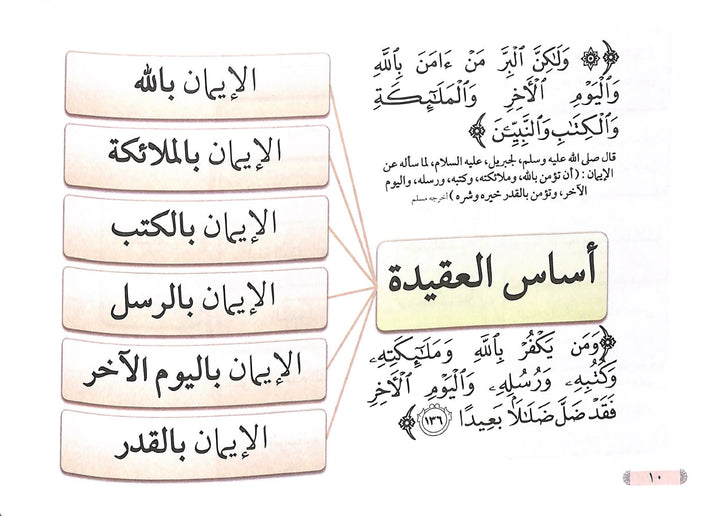 ﴿ وَلَٰكِنَّ ٱلْبِرَّ مَنْ ءَامَنَ بِٱللَّهِ
وَٱلْيَوْمِ ٱلْأَخِرِ وَٱلْمَلَٰٓئِكَةِ
وَٱلْكِتَٰبِ وَٱلنَّبِيِّـۧنَ ﴾
قال صلى الله عليه وسلم، لجبريل، عليه السلام، لما سأله عن
الإيمان : ( أن تؤمن بالله، وملائكته، وكتبه، ورسله، واليوم
الآخر، وتؤمن بالقدر خيره وشره ) أخرجه مسلم
أساس العقيدة
الإيمان بالله
الإيمان بالملائكة
الإيمان بالكتب
الإيمان بالرسل
الإيمان باليوم الآخر
الإيمان بالقدر
﴿ وَمَن يَكْفُرْ بِٱللَّهِ وَمَلَٰٓئِكَتِهِۦ
وَكُتُبِهِۦ وَرُسُلِهِۦ وَٱلْيَوْمِ ٱلْأَخِرِ
فَقَدْ ضَلَّ ضَلَٰلًۢا بَعِيدًا ١٣٦ ﴾
١٠